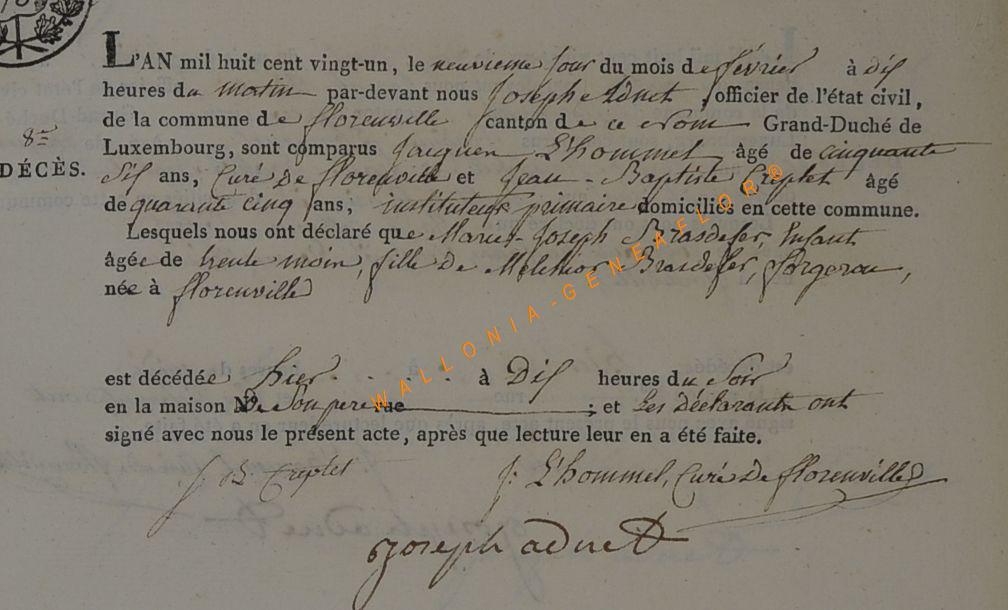 L'AN mil huit cent vingt-un, le neuvieme jour du mois de fevrier à dix
heures du matin par-devant nous Joseph Adnet, officier de l'état civil,
de la commune de florenville canton de ce nom Grand-Duché de
8me
DÉCÈS.
Luxembourg, sont comparus Jacques L'hommel âgé de cinquante
Six ans, Curé De florenville et Jean-Baptiste Creplet âgé
de quarante cinq ans, instituteur primaire domiciliés en cette commune.
Lesquels nous ont déclaré que Marie-Joseph Brasdefer, Enfant
âgée de trente mois, fille De Melchior Brasdefer, forgeron,
née à florenville
est décédée hier à Dix heures du Soir
en la maison De Son pere rue ; et Les déclarants ont
signé avec nous le présent acte, après que lecture leur en a été faite.
J. B. Creplet
J. L'hommel, Curé De florenville
Joseph adnet
WALLONIA-GENEAFLOR®